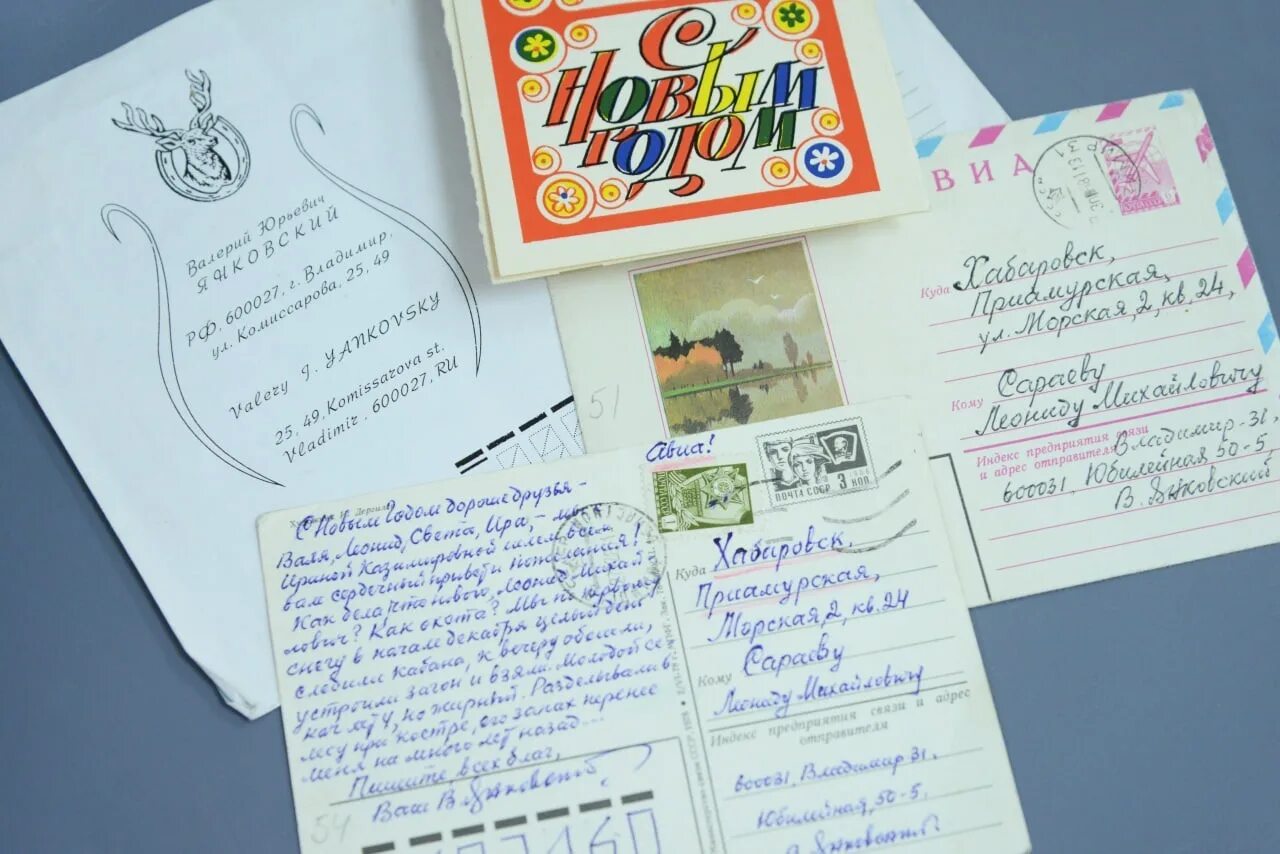 С
Новым
годом
Валерий Юрьевич
ЯНКОВСКИЙ
РФ, 600027, г. Владимир,
ул. Комиссарова, 25, 49
Valery J. YANKOVSKY
25, 49, Komissarova st.
Vladimir, 600027, RU
АВИА
Куда Хабаровск,
Приамурская,
ул. Морская, 2, кв. 24,
Кому Сараеву
Леониду Михайловичу
Индекс предприятия связи
и адрес отправителя
Владимир-31
600031, Юбилейная 50-5,
В. Янковский
51
Авиа!
ПОЧТА СССР 3 КОП
С Новым Годом дорогие друзья –
Валя, Леонид, Света, Ира, – мы с
Ириной Казимировной шлем всем
вам сердечный привет и пожелания!
Как дела, что нового, Леонид Михай
лович? Как охота? Мы по первому
снегу в начале декабря целый день
следили кабана, к вечеру обошли,
устроили загон и взяли. Молодой се
кач, но жирный. Разделывали в
лесу при костре, его запах перенес
меня на много лет назад...
Пишите, всех благ,
Ваш В Янковский
54
Куда Хабаровск,
Приамурская,
Морская, 2, кв. 24
Кому Сараеву
Леониду Михайловичу
Индекс предприятия связи и адрес
отправителя
600031, Владимир 31,
Юбилейная, 50-5.
Янковский